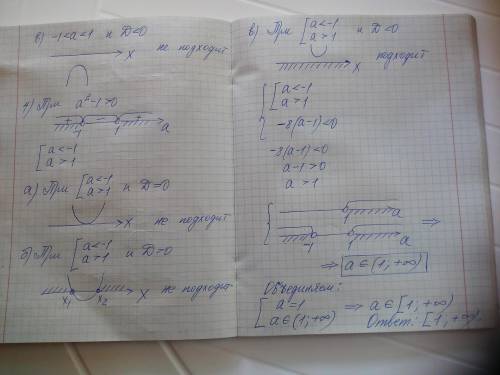 в) -1<a<1 и D<0
x не подходит
4) При a²-1>0
+ - +
-1 1 a
[ a<-1
a>1
а) При [ a<-1
a>1 и D=0
x не подходит
б) При [ a<-1
a>1 и D>0
x₁ x₂ x не подходит
в) При [ a<-1
a>1 и D<0
x подходит
{ [ a<-1
a>1
-8(a-1)<0
-8(a-1)<0
a-1>0
a>1
{ 1 a
-1 1 a ⇒
⇒ a∈(1;+∞)
Объединяем:
[ a=1
a∈(1;+∞) ⇒ a∈[1;+∞)
Ответ: [1;+∞)